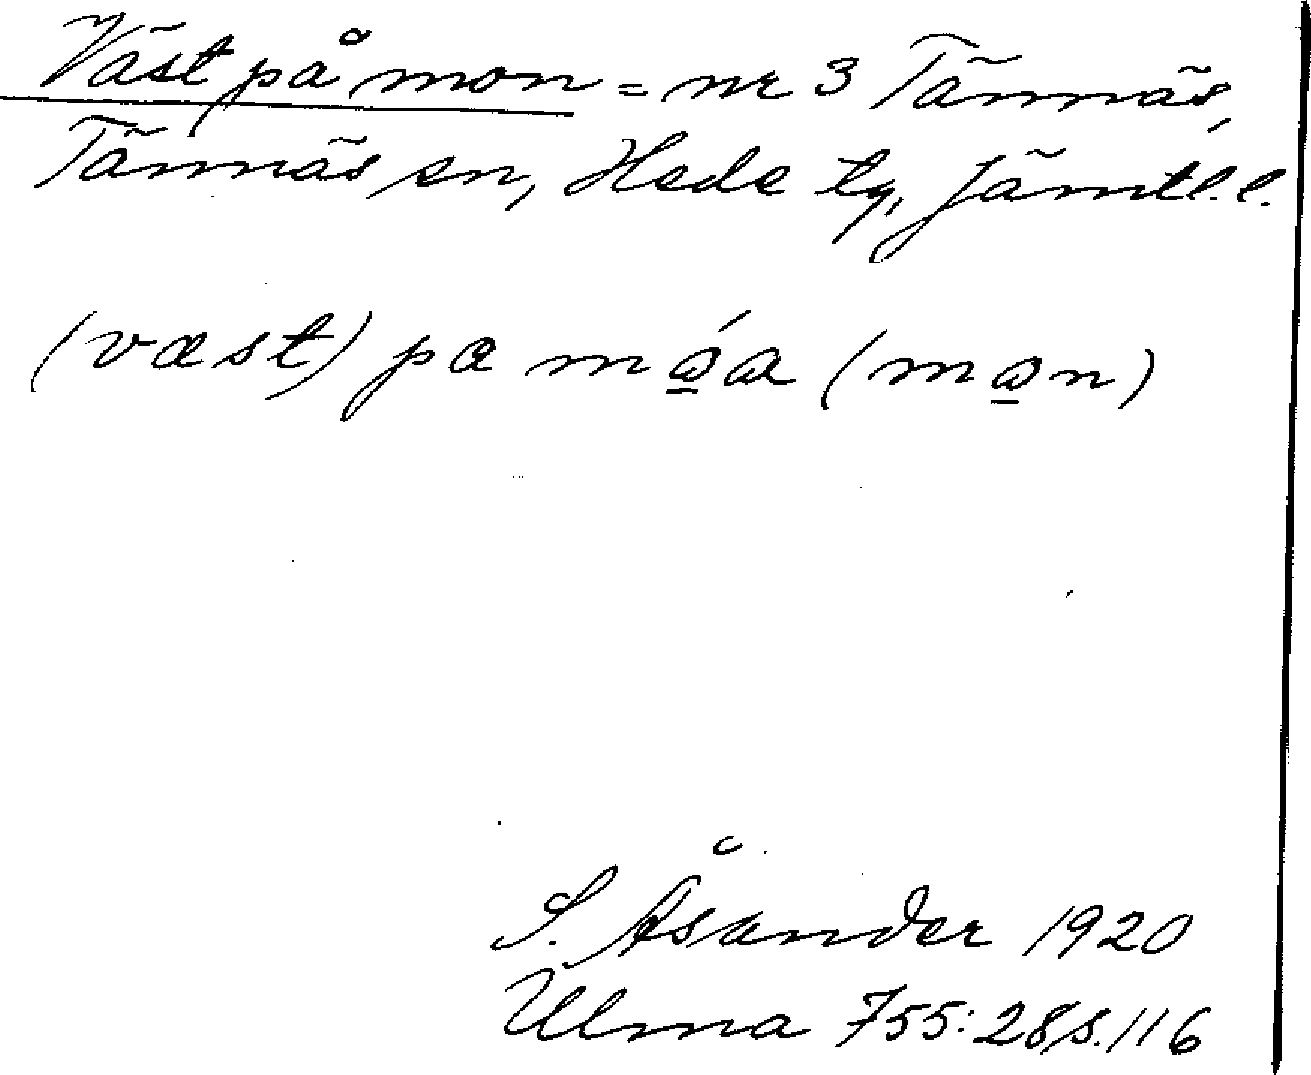 Väst på mon = nr 3 Tännäs,
Tännäs sn, Hede tg, Jämtl.l.
(væst) pa mǿa (møn)
S. Åsander 1920
Ulma 755:28 s.116